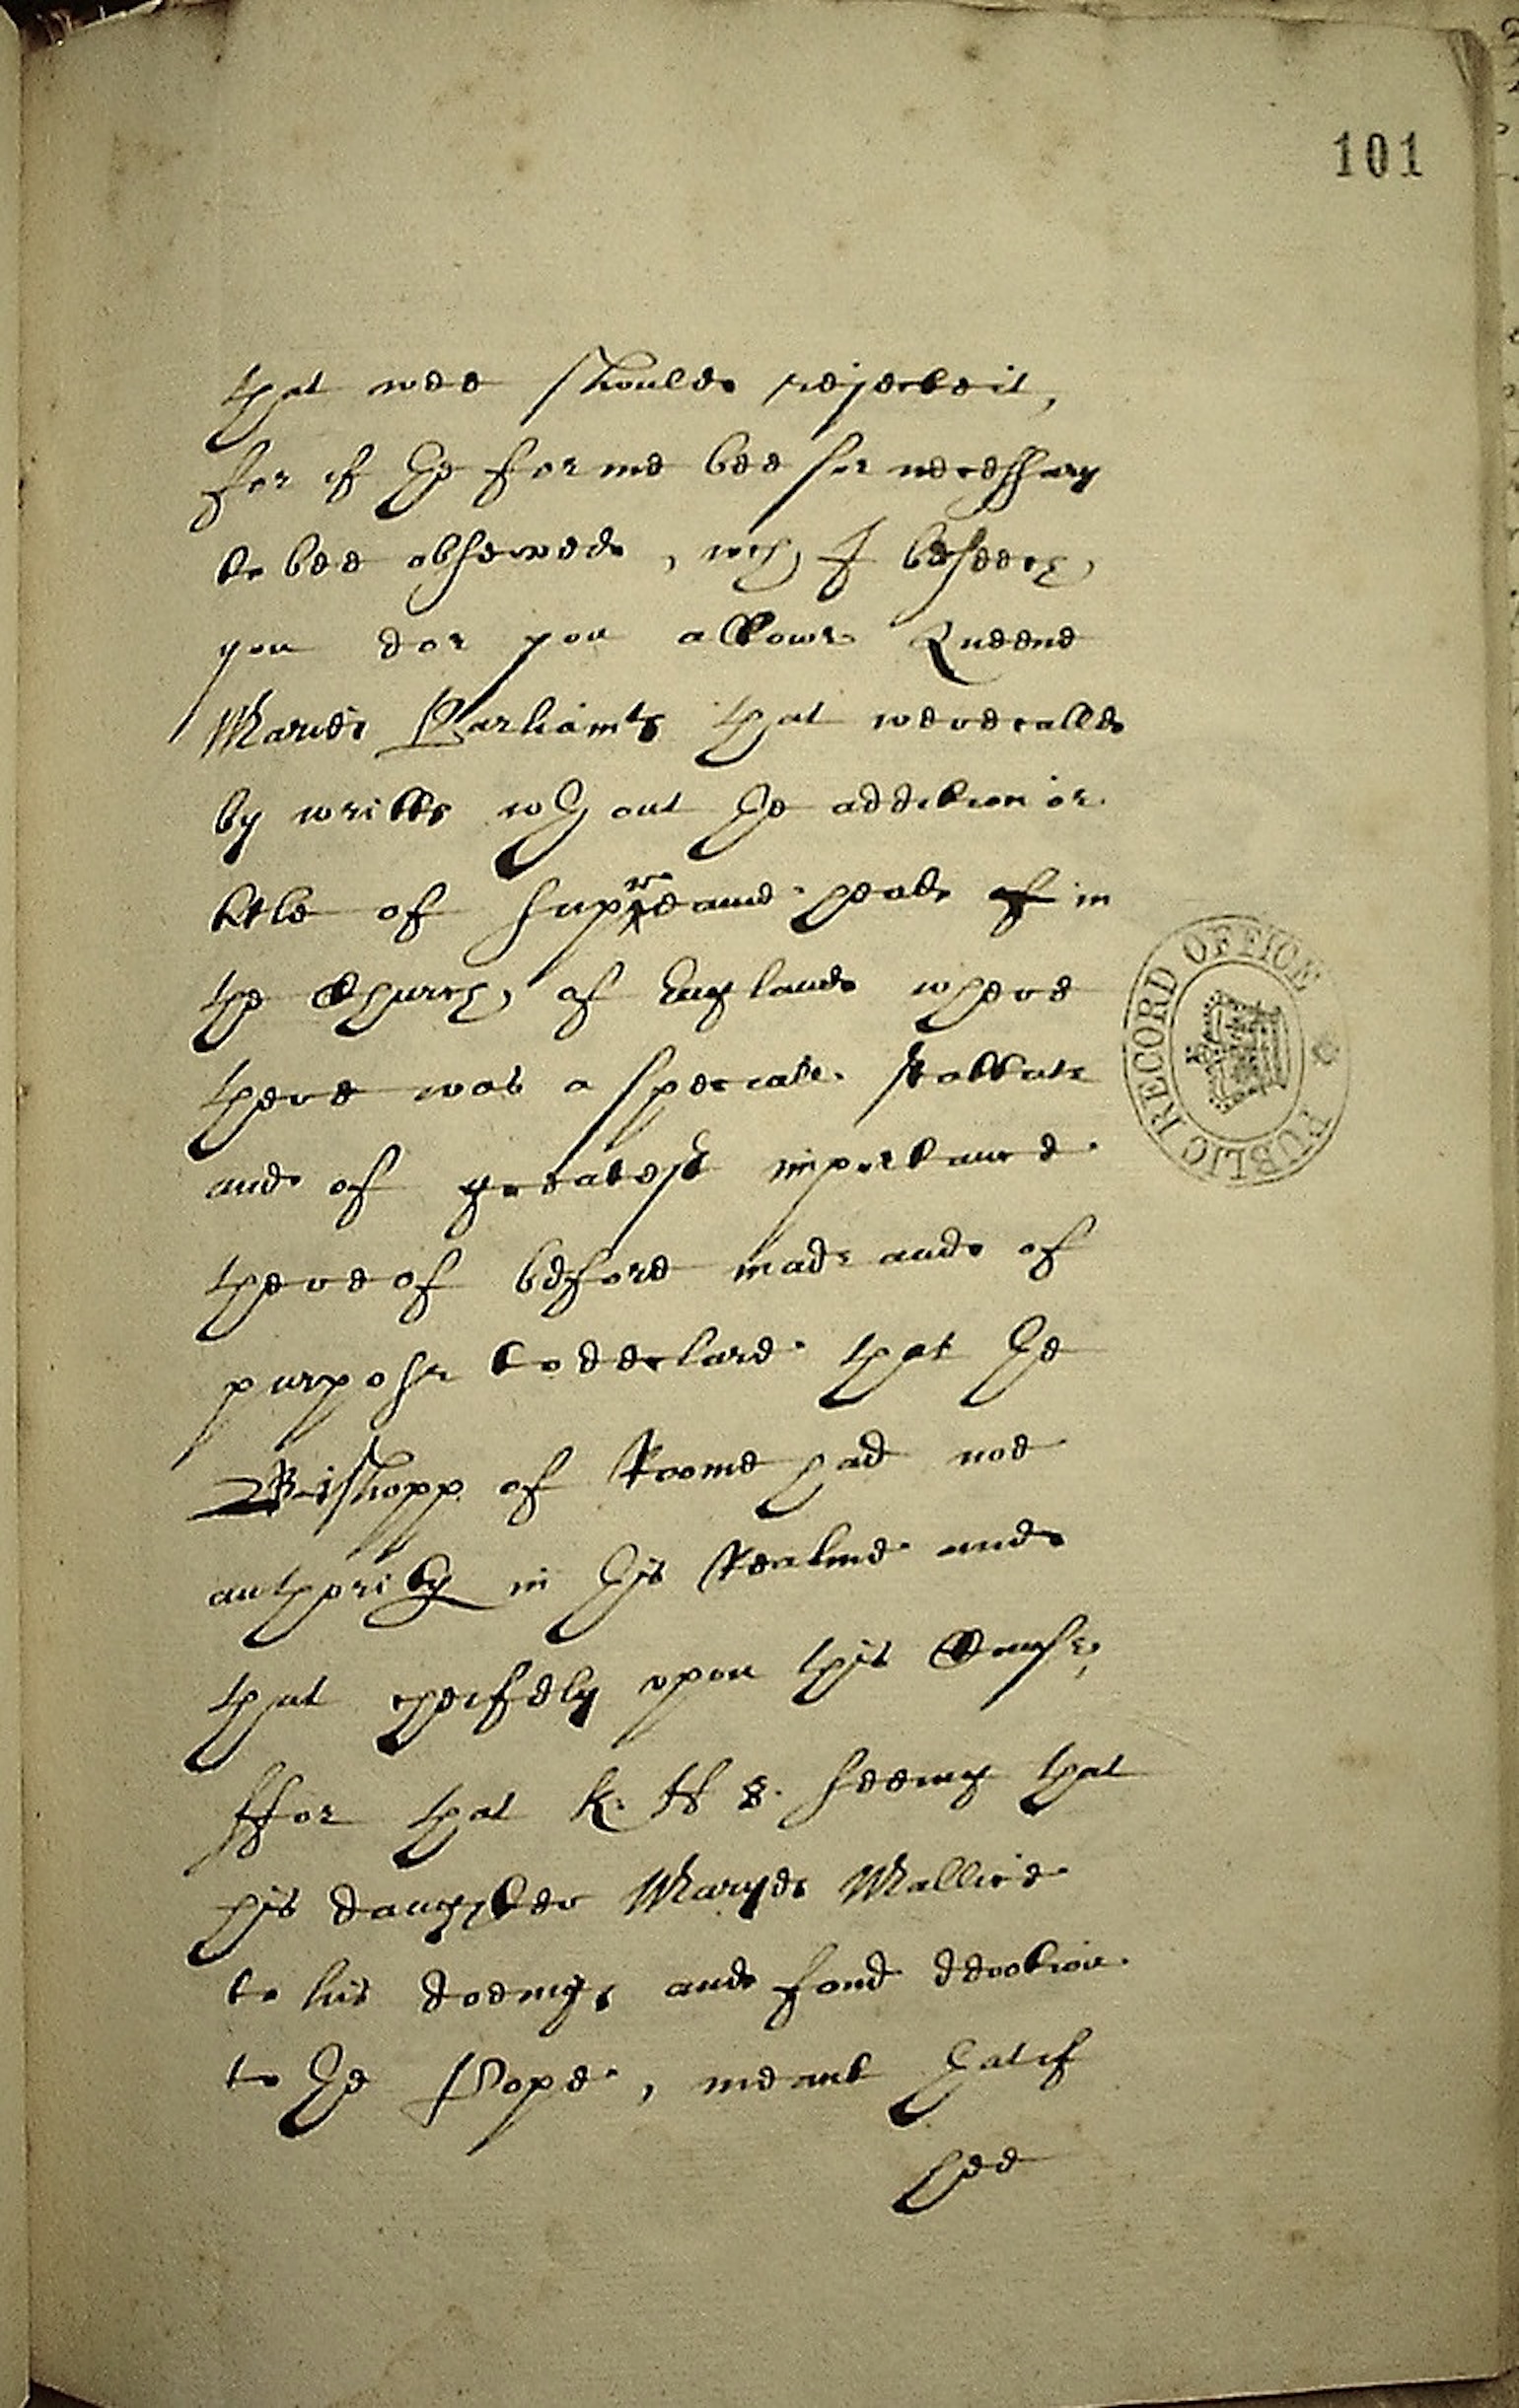 101
that wee shoulde rejecte it,
for if the forme bee soe necessary
to bee observed, why I beseech
you doe you allowe Queene
Maries Parliamts that were calld
by writts wthout the addition or
title of supreame head of in
the Church of England where
there was a speciall statute
and of greatest importance
thereof before made and of
purpose to declare that the
Bishopp of Roome had noe
authority in this Realme and
that cheifely upon this Cause,
ffor that K. H 8. seeing that
his daughter Maryes Mallice
to his doeings and fond devotion
to the Pope, meant that if
hee
PUBLIC RECORD OFFICE